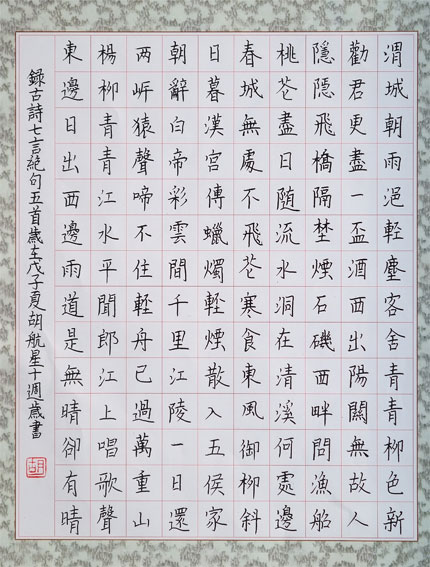 渭城朝雨浥輕塵客舍青青柳色新
勸君更盡一盃酒西出陽關無故人
隱隱飛橋隔埜煙石磯西畔問漁船
桃花盡日随流水洞在清溪何處邊
春城無處不飛花寒食東風御柳斜
日暮漢宮傳蠟燭輕煙散入五侯家
朝辭白帝彩雲間千里江陵一日還
两岸猿聲啼不住輕舟已過萬重山
楊柳青青江水平聞郎江上唱歌聲
東邊日出西邊雨道是無晴卻有晴
錄古詩七言絕句五首歲在戊子夏胡航星十週歲書
胡